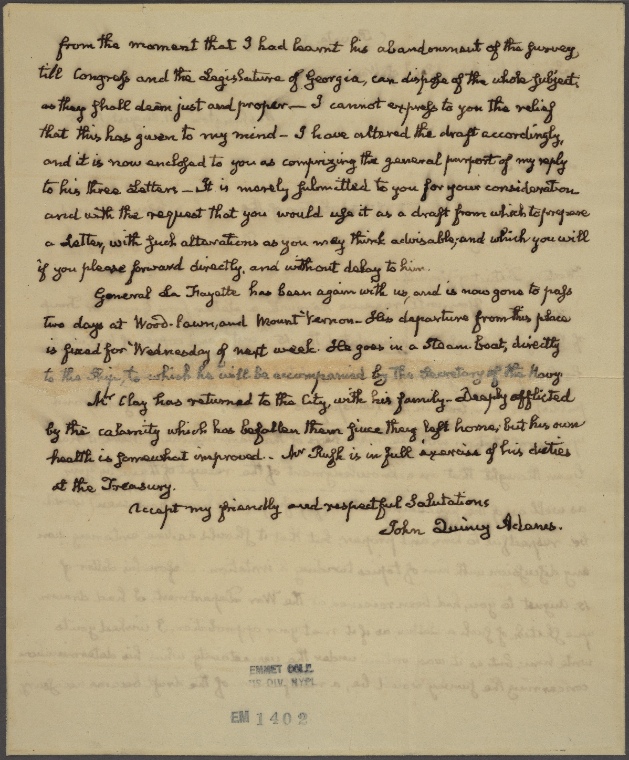 from the moment that I had learnt his abandonment of the survey,
till Congress and the Legislature of Georgia, can dispose of the whole subject,
as they shall deem just and proper — I cannot express to you the relief
that this has given to my mind — I have altered the draft accordingly,
and it is now enclosed to you as comprizing the general purport of my reply
to his three Letters — It is merely submitted to you for your consideration
and with the request that you would use it as a draft from which to prepare
a Letter, with such alterations as you may think advisable; and which you will
if you please forward directly, and without delay to him.
General La Fayette has been again with us, and is now gone to pass
two days at Wood-lawn, and Mount Vernon — His departure from this place
is fixed for Wednesday of next week. He goes in a Steam Boat, directly
to the Ship, to which he will be accompanied by the Secretary of the Navy.
Mr Clay has returned to the City, with his family — Deeply afflicted
by the calamity which has befallen them since they left home; but his own
health is somewhat improved. — Mr Rush is in full exercise of his duties
at the Treasury.
Accept my friendly and respectful Salutations
John Quincy Adams.
EMMET COLL.
MS DIV. NYPL
EM 1402